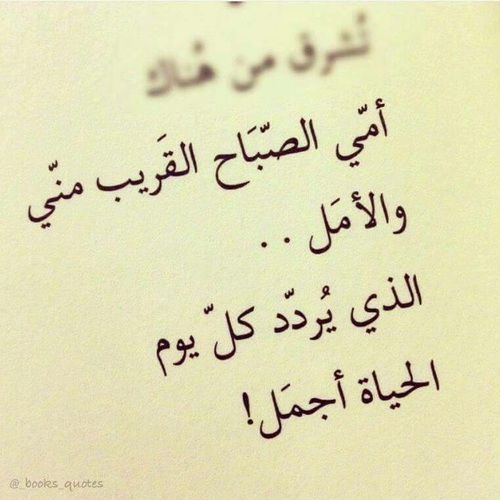 تُشرق من هُناك
أمّي الصّبَاح القَريب منّي
والأمَل . .
الذي يُردّد كلّ يوم
الحياة أجمَل!
@_books_quotes